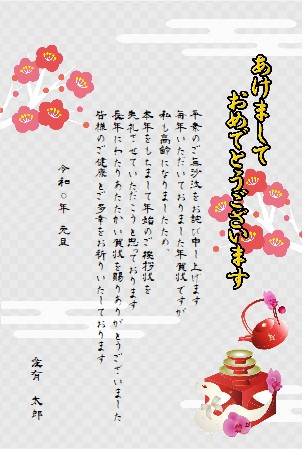 あけまして
おめでとうございます
平素のご無沙汰をお詫び申し上げます
毎年いただいておりました年賀状ですが
私も高齢になりましたため、
本年をもちまして年始のご挨拶状を
失礼させていただこうと思っております
長年にわたりあたたかい賀状を賜りありがとうございました
皆様のご健康とご多幸をお祈りいたしております
令和○年 元旦
愛有 太郎